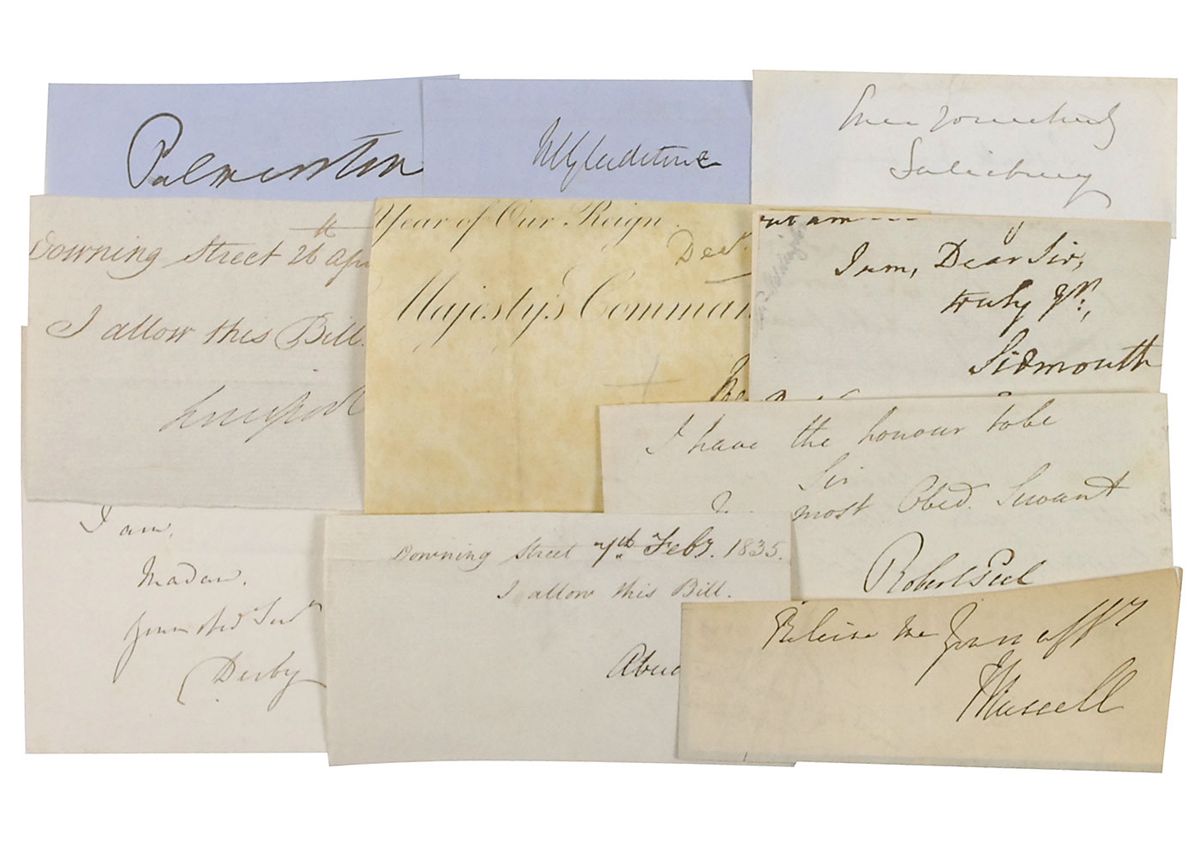 Palmerston
WEGladstone
Ever yours truly
Salisbury
Downing Street 26th Apr
I allow this Bill.
Liverpool
Year of Our Reign.
Decr.
Majesty's Comman
but am
I am, Dear Sir,
truly yrs,
Sidmouth
I have the honour to be
Sir
most Obed. Servant
Robert Peel
I am,
Madam.
Your obedt Servt
Derby
Downing Street 7th Feby. 1835.
I allow this Bill.
Aberd
Believe me Yours affly
JRussell